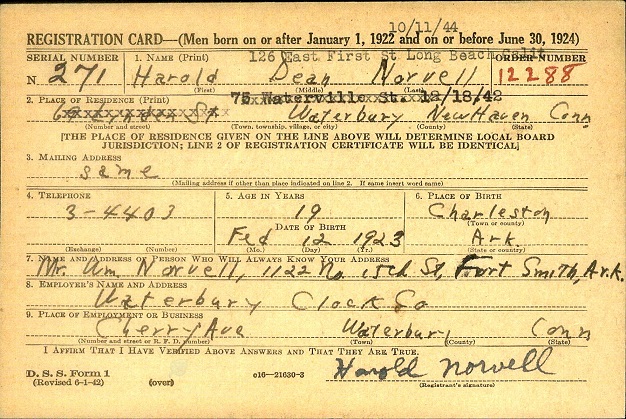 10/11/44
REGISTRATION CARD—(Men born on or after January 1, 1922 and on or before June 30, 1924)
126 East First St Long Beach Calif
SERIAL NUMBER 1. NAME (Print) ORDER NUMBER
N. 271 Harold Dean Norvell 12288
(First) (Middle) (Last)
2. PLACE OF RESIDENCE (Print) 75 Waterville St. 12/18/42
St Waterbury New Haven Conn
(Number and street) (Town, township, village, or city) (County) (State)
[THE PLACE OF RESIDENCE GIVEN ON THE LINE ABOVE WILL DETERMINE LOCAL BOARD
JURISDICTION; LINE 2 OF REGISTRATION CERTIFICATE WILL BE IDENTICAL]
3. MAILING ADDRESS
same
(Mailing address if other than place indicated on line 2. If same insert word same)
4. TELEPHONE 5. AGE IN YEARS 6. PLACE OF BIRTH
3-4403 19 Charleston
(Town or county)
DATE OF BIRTH
Feb 12 1923 Ark.
(Exchange) (Number) (Mo.) (Day) (Yr.) (State or country)
7. NAME AND ADDRESS OF PERSON WHO WILL ALWAYS KNOW YOUR ADDRESS
Mr. Wm. Norvell, 1122 No. 15th St, Fort Smith, Ark.
8. EMPLOYER'S NAME AND ADDRESS
Waterbury Clock Co
9. PLACE OF EMPLOYMENT OR BUSINESS
Cherry Ave Waterbury Conn
(Number and street or R. F. D. number) (Town) (County) (State)
I AFFIRM THAT I HAVE VERIFIED ABOVE ANSWERS AND THAT THEY ARE TRUE.
D. S. S. Form 1
(Revised 6-1-42) (over) c16—21630-3 Harold Norvell
(Registrant's signature)